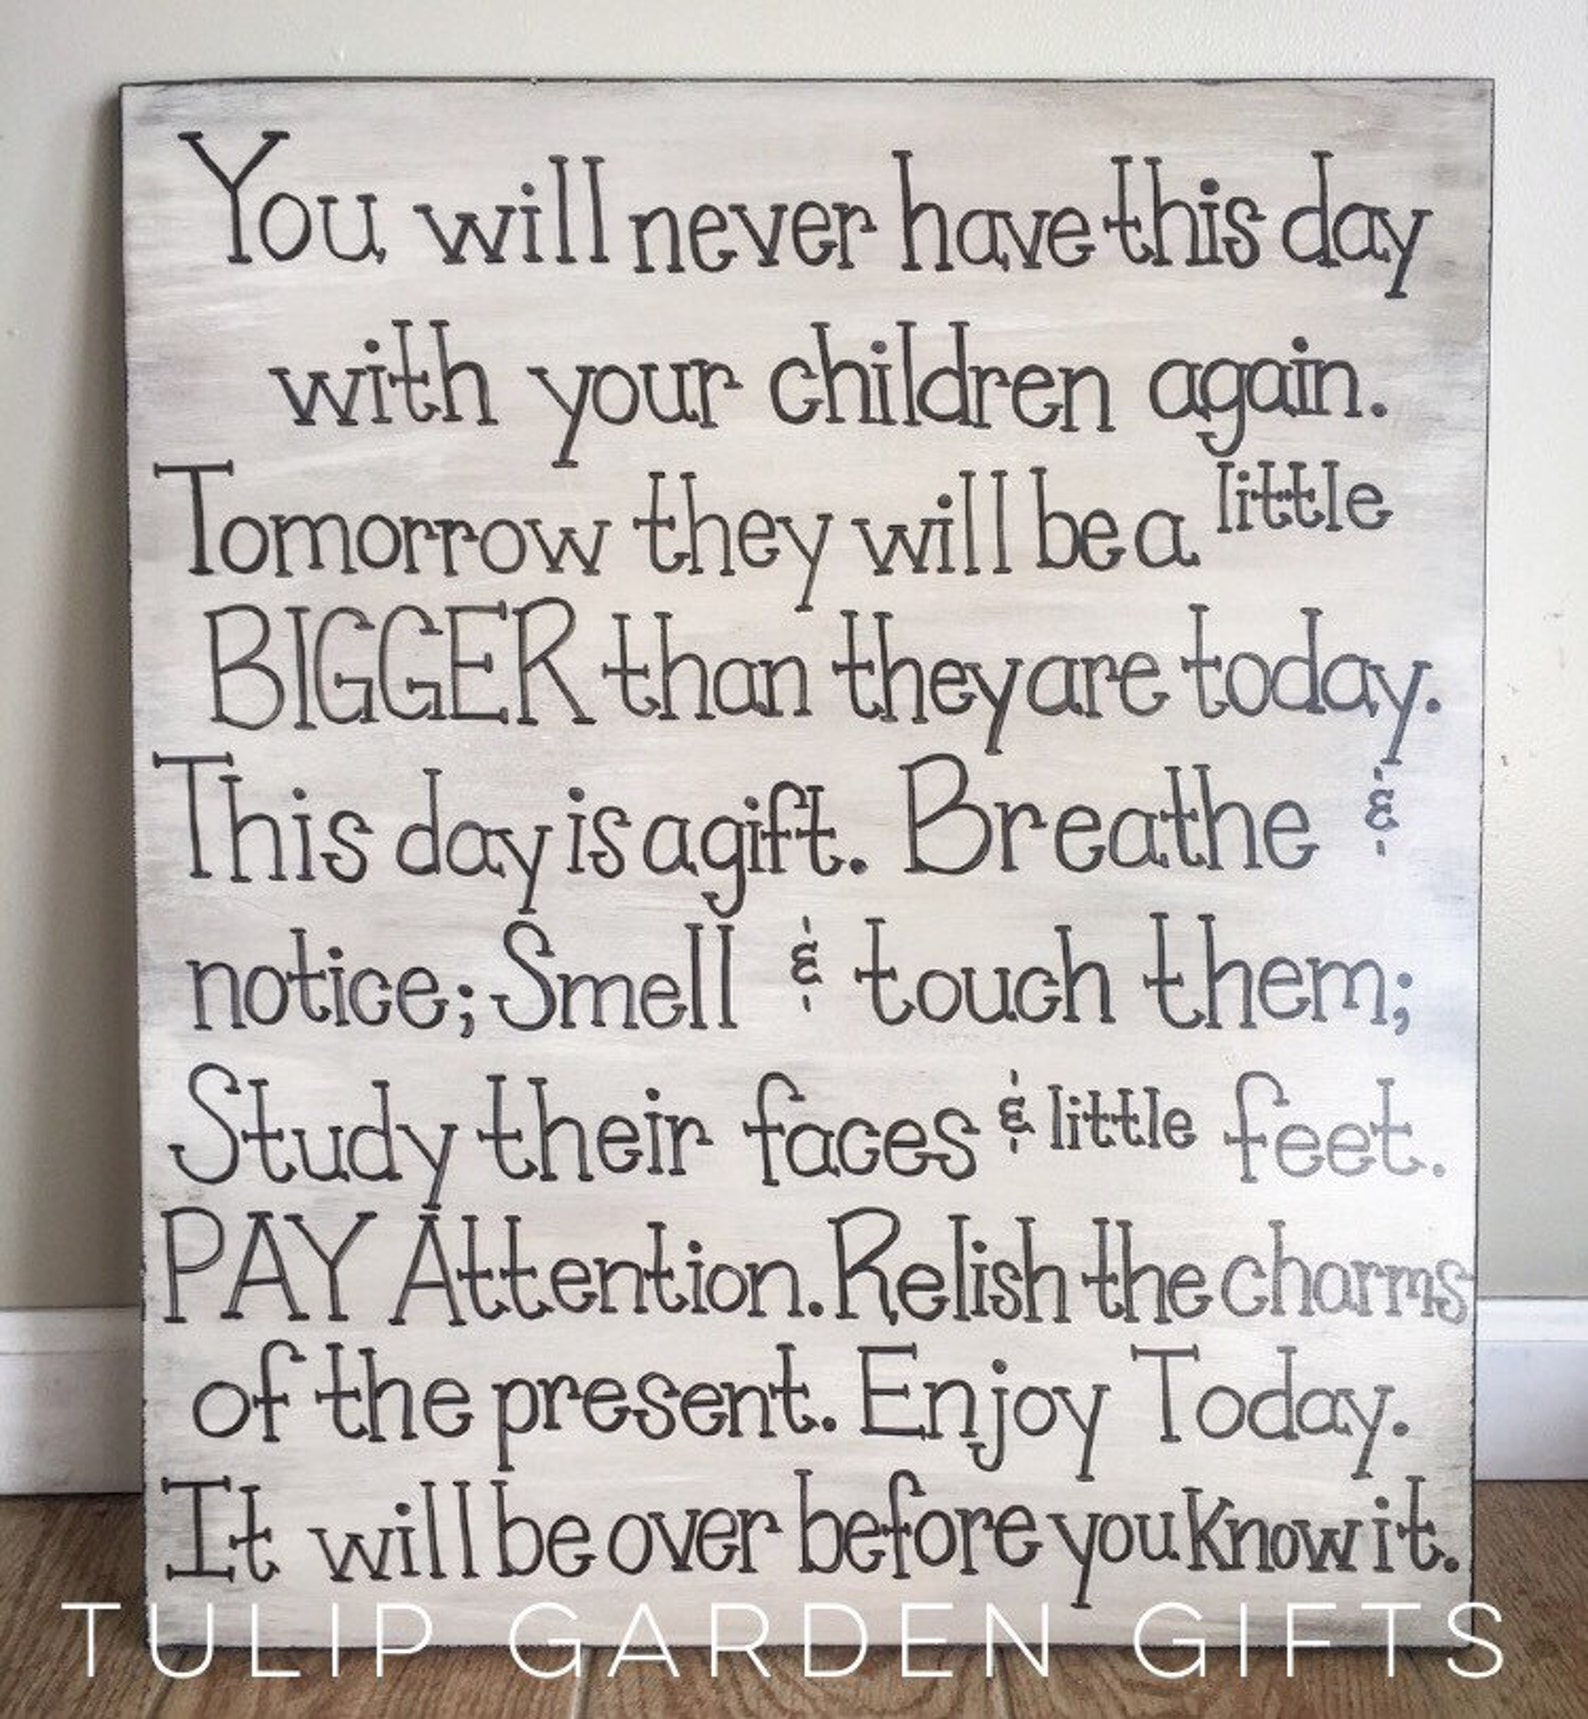 You will never have this day
with your children again.
Tomorrow they will be a little
BIGGER than they are today.
This day is a gift. Breathe &
notice; Smell & touch them;
Study their faces & little feet.
PAY Attention. Relish the charms
of the present. Enjoy Today.
It will be over before you know it.
TULIP GARDEN GIFTS